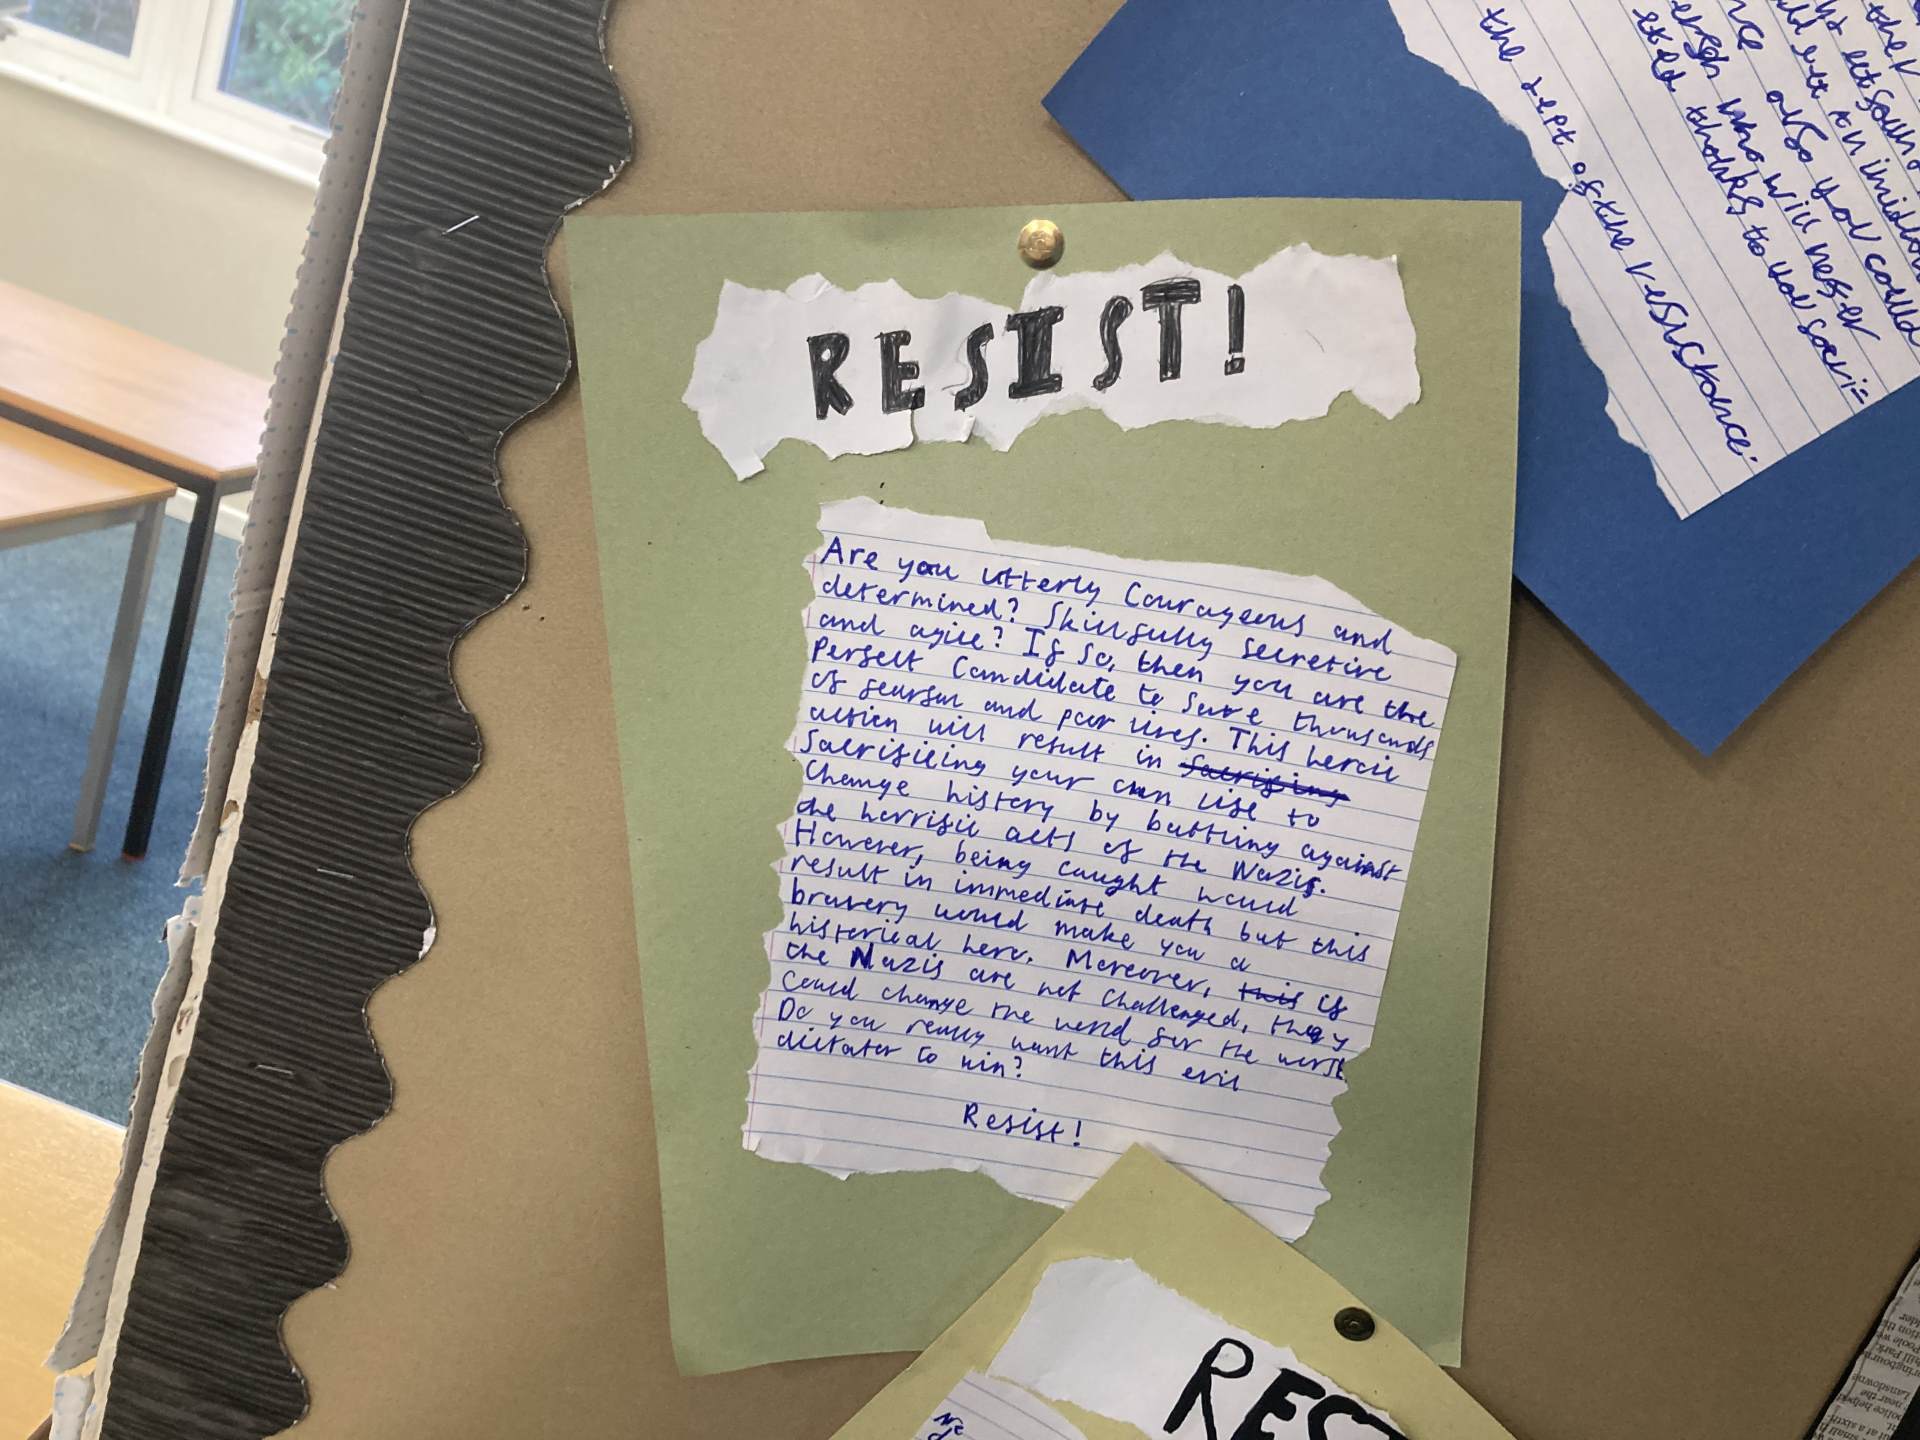 RESIST!
Are you utterly Courageous and
determined? Skillfully secretive
and agile? If so, then you are the
perfect Candidate to save thousands
of fearful and poor lives. This heroic
action will result in
Sacrificing your own life to
Change history by battling against
the horrific acts of the Nazis.
However, being caught would
result in immediate death but this
bravery would make you a
historical hero. Moreover, this if
the Nazis are not Challenged, they
Could change the world for the worst.
Do you really want this evil
dictator to win?
Resist!
the rest of the resistance.